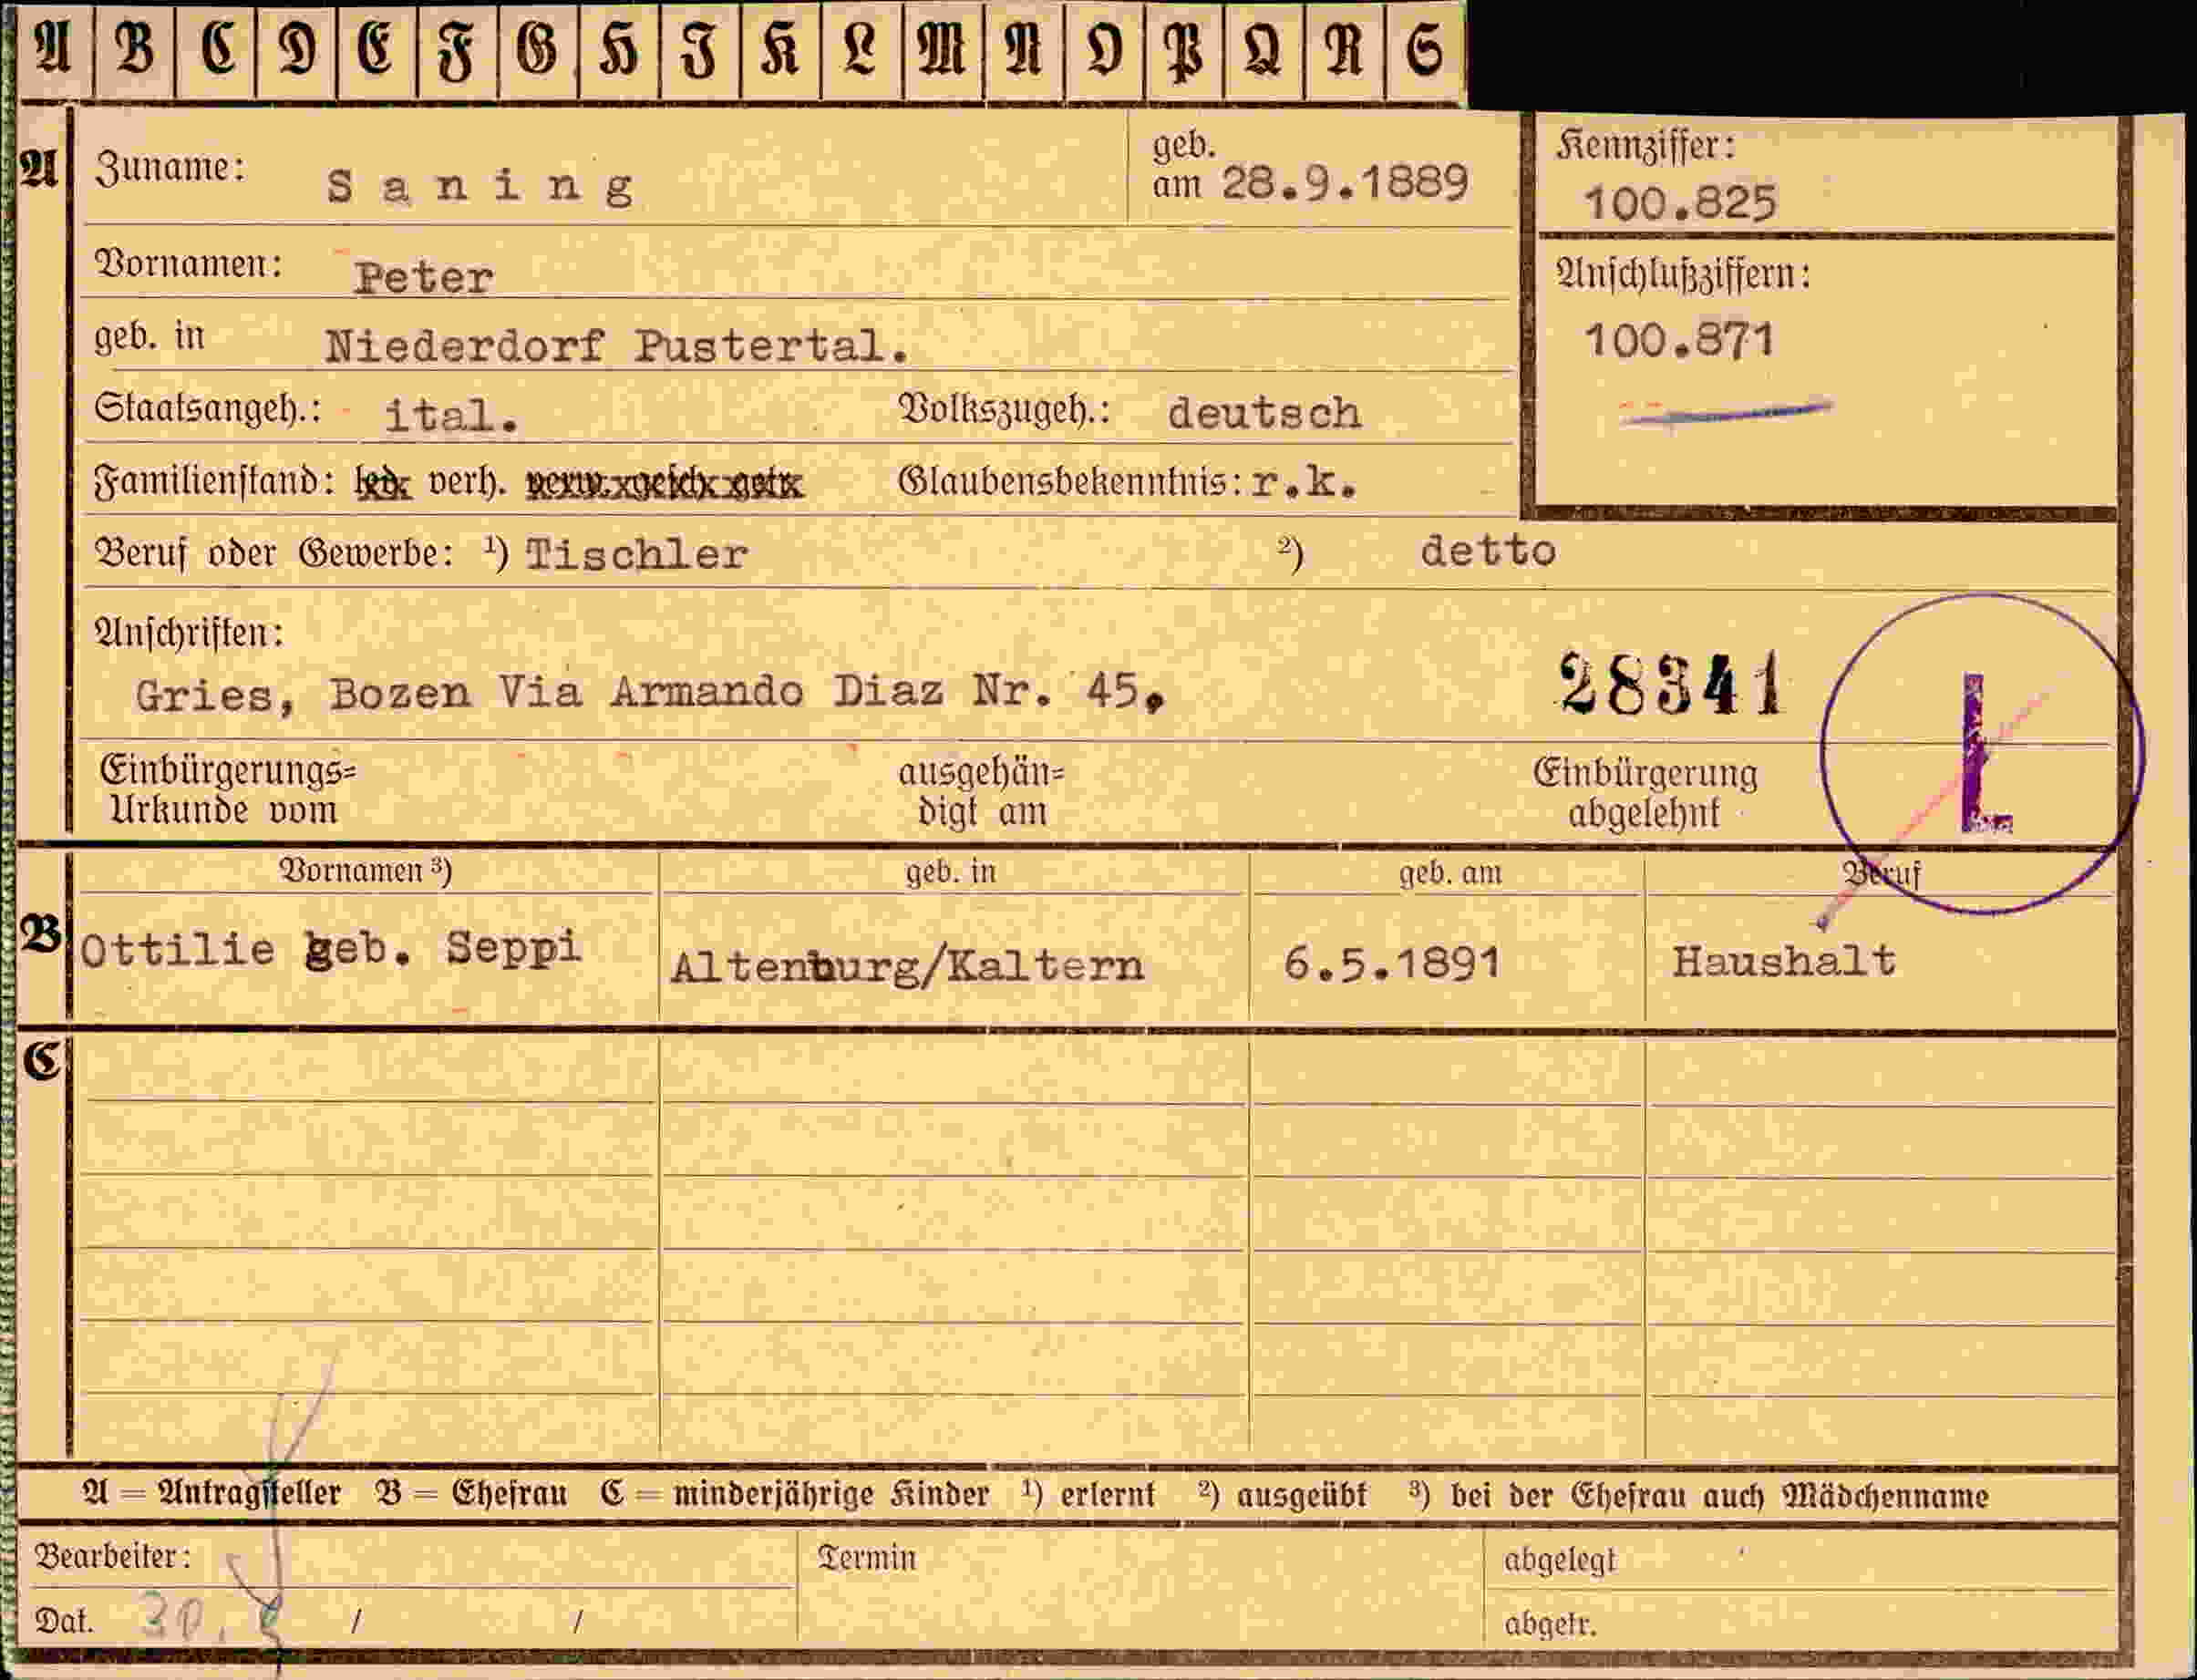 A B C D E F G H I K L M N O P Q R S
A Zuname: Saning geb. am 28.9.1889 Kennziffer: 100.825
Vornamen: Peter
geb. in Niederdorf Pustertal. Anschlußziffern: 100.871
Staatsangeh.: ital. Volkszugeh.: deutsch
Familienstand: led. verh. verw. gesch. getr. Glaubensbekenntnis: r.k.
Beruf oder Gewerbe: ¹) Tischler ²) detto
Anschriften:
Gries, Bozen Via Armando Diaz Nr. 45. 28341
L
Einbürgerungs= ausgehän= Einbürgerung
Urkunde vom digt am abgelehnt
Vornamen ³) geb. in geb. am Beruf
B Ottilie geb. Seppi Altenburg/Kaltern 6.5.1891 Haushalt
C
A = Antragsteller B = Ehefrau C = minderjährige Kinder ¹) erlernt ²) ausgeübt ³) bei der Ehefrau auch Mädchenname
Bearbeiter: Termin abgelegt
Dat. 30. / / abgetr.